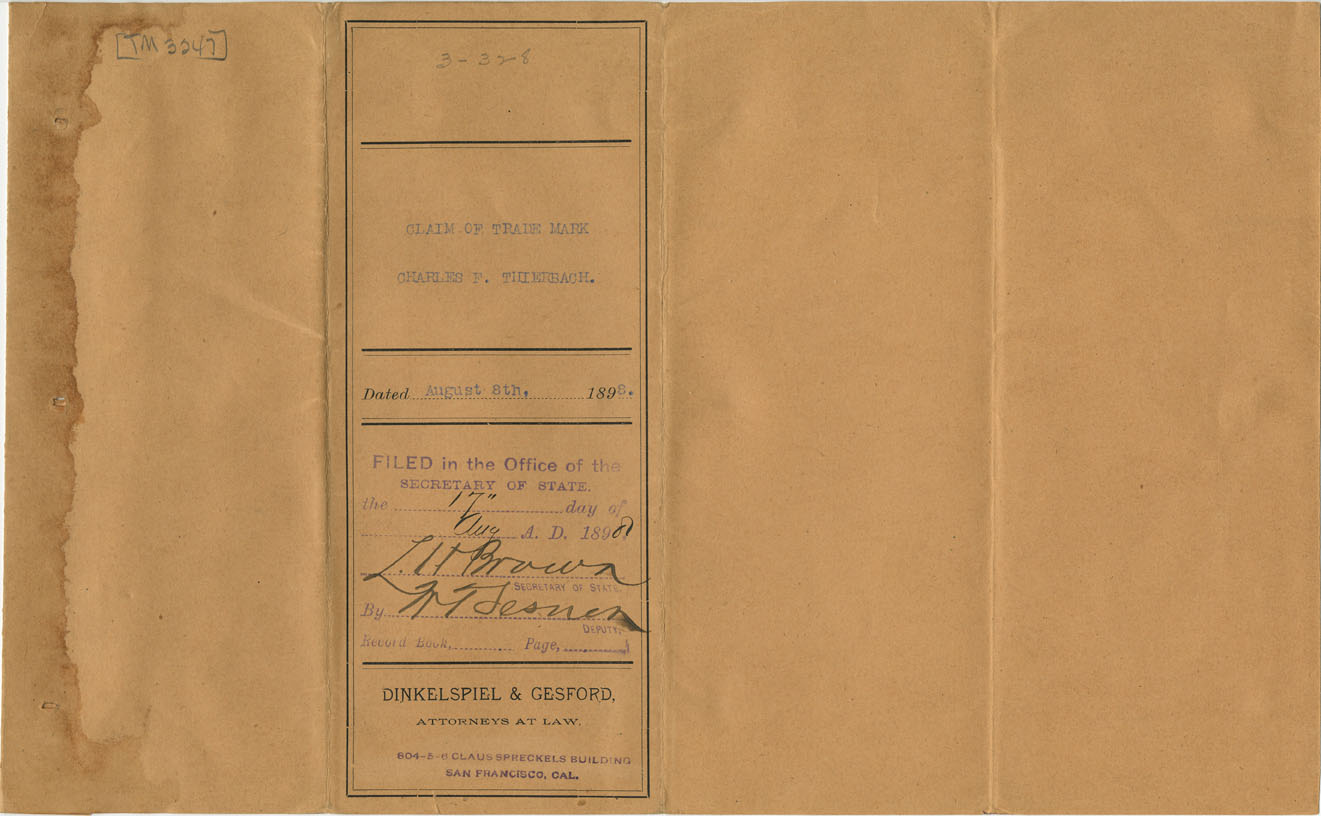 [TM 3247]
3-328
CLAIM OF TRADE MARK
CHARLES F. THIERBACH.
Dated August 8th, 1898.
FILED in the Office of the
SECRETARY OF STATE.
the 17" day of
Aug A. D. 1898
L. H. Brown
SECRETARY OF STATE.
By
DEPUTY.
Record Book, Page,
DINKELSPIEL & GESFORD,
ATTORNEYS AT LAW,
804-5-6 CLAUS SPRECKELS BUILDING
SAN FRANCISCO, CAL.